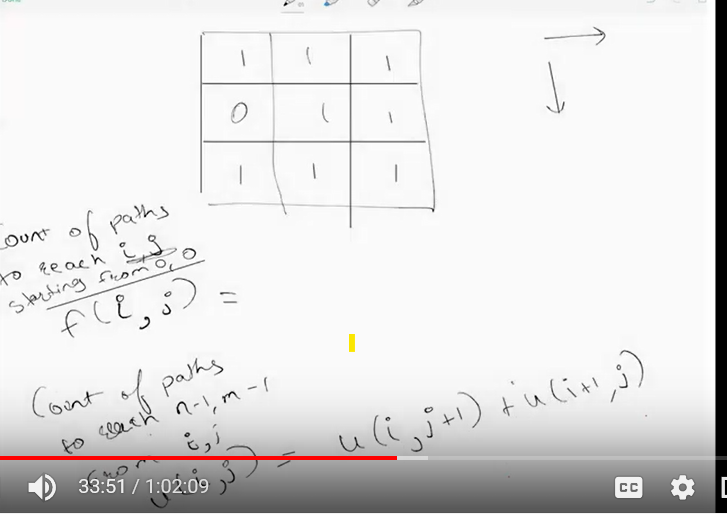 1 1 1
0 1 1
1 1 1
Count of paths
to reach i,j
starting from 0,0
f(i,j) =
Count of paths
to reach n-1,m-1
from i,j
u(i,j) = u(i,j+1) + u(i+1,j)
33:51 / 1:02:09
CC